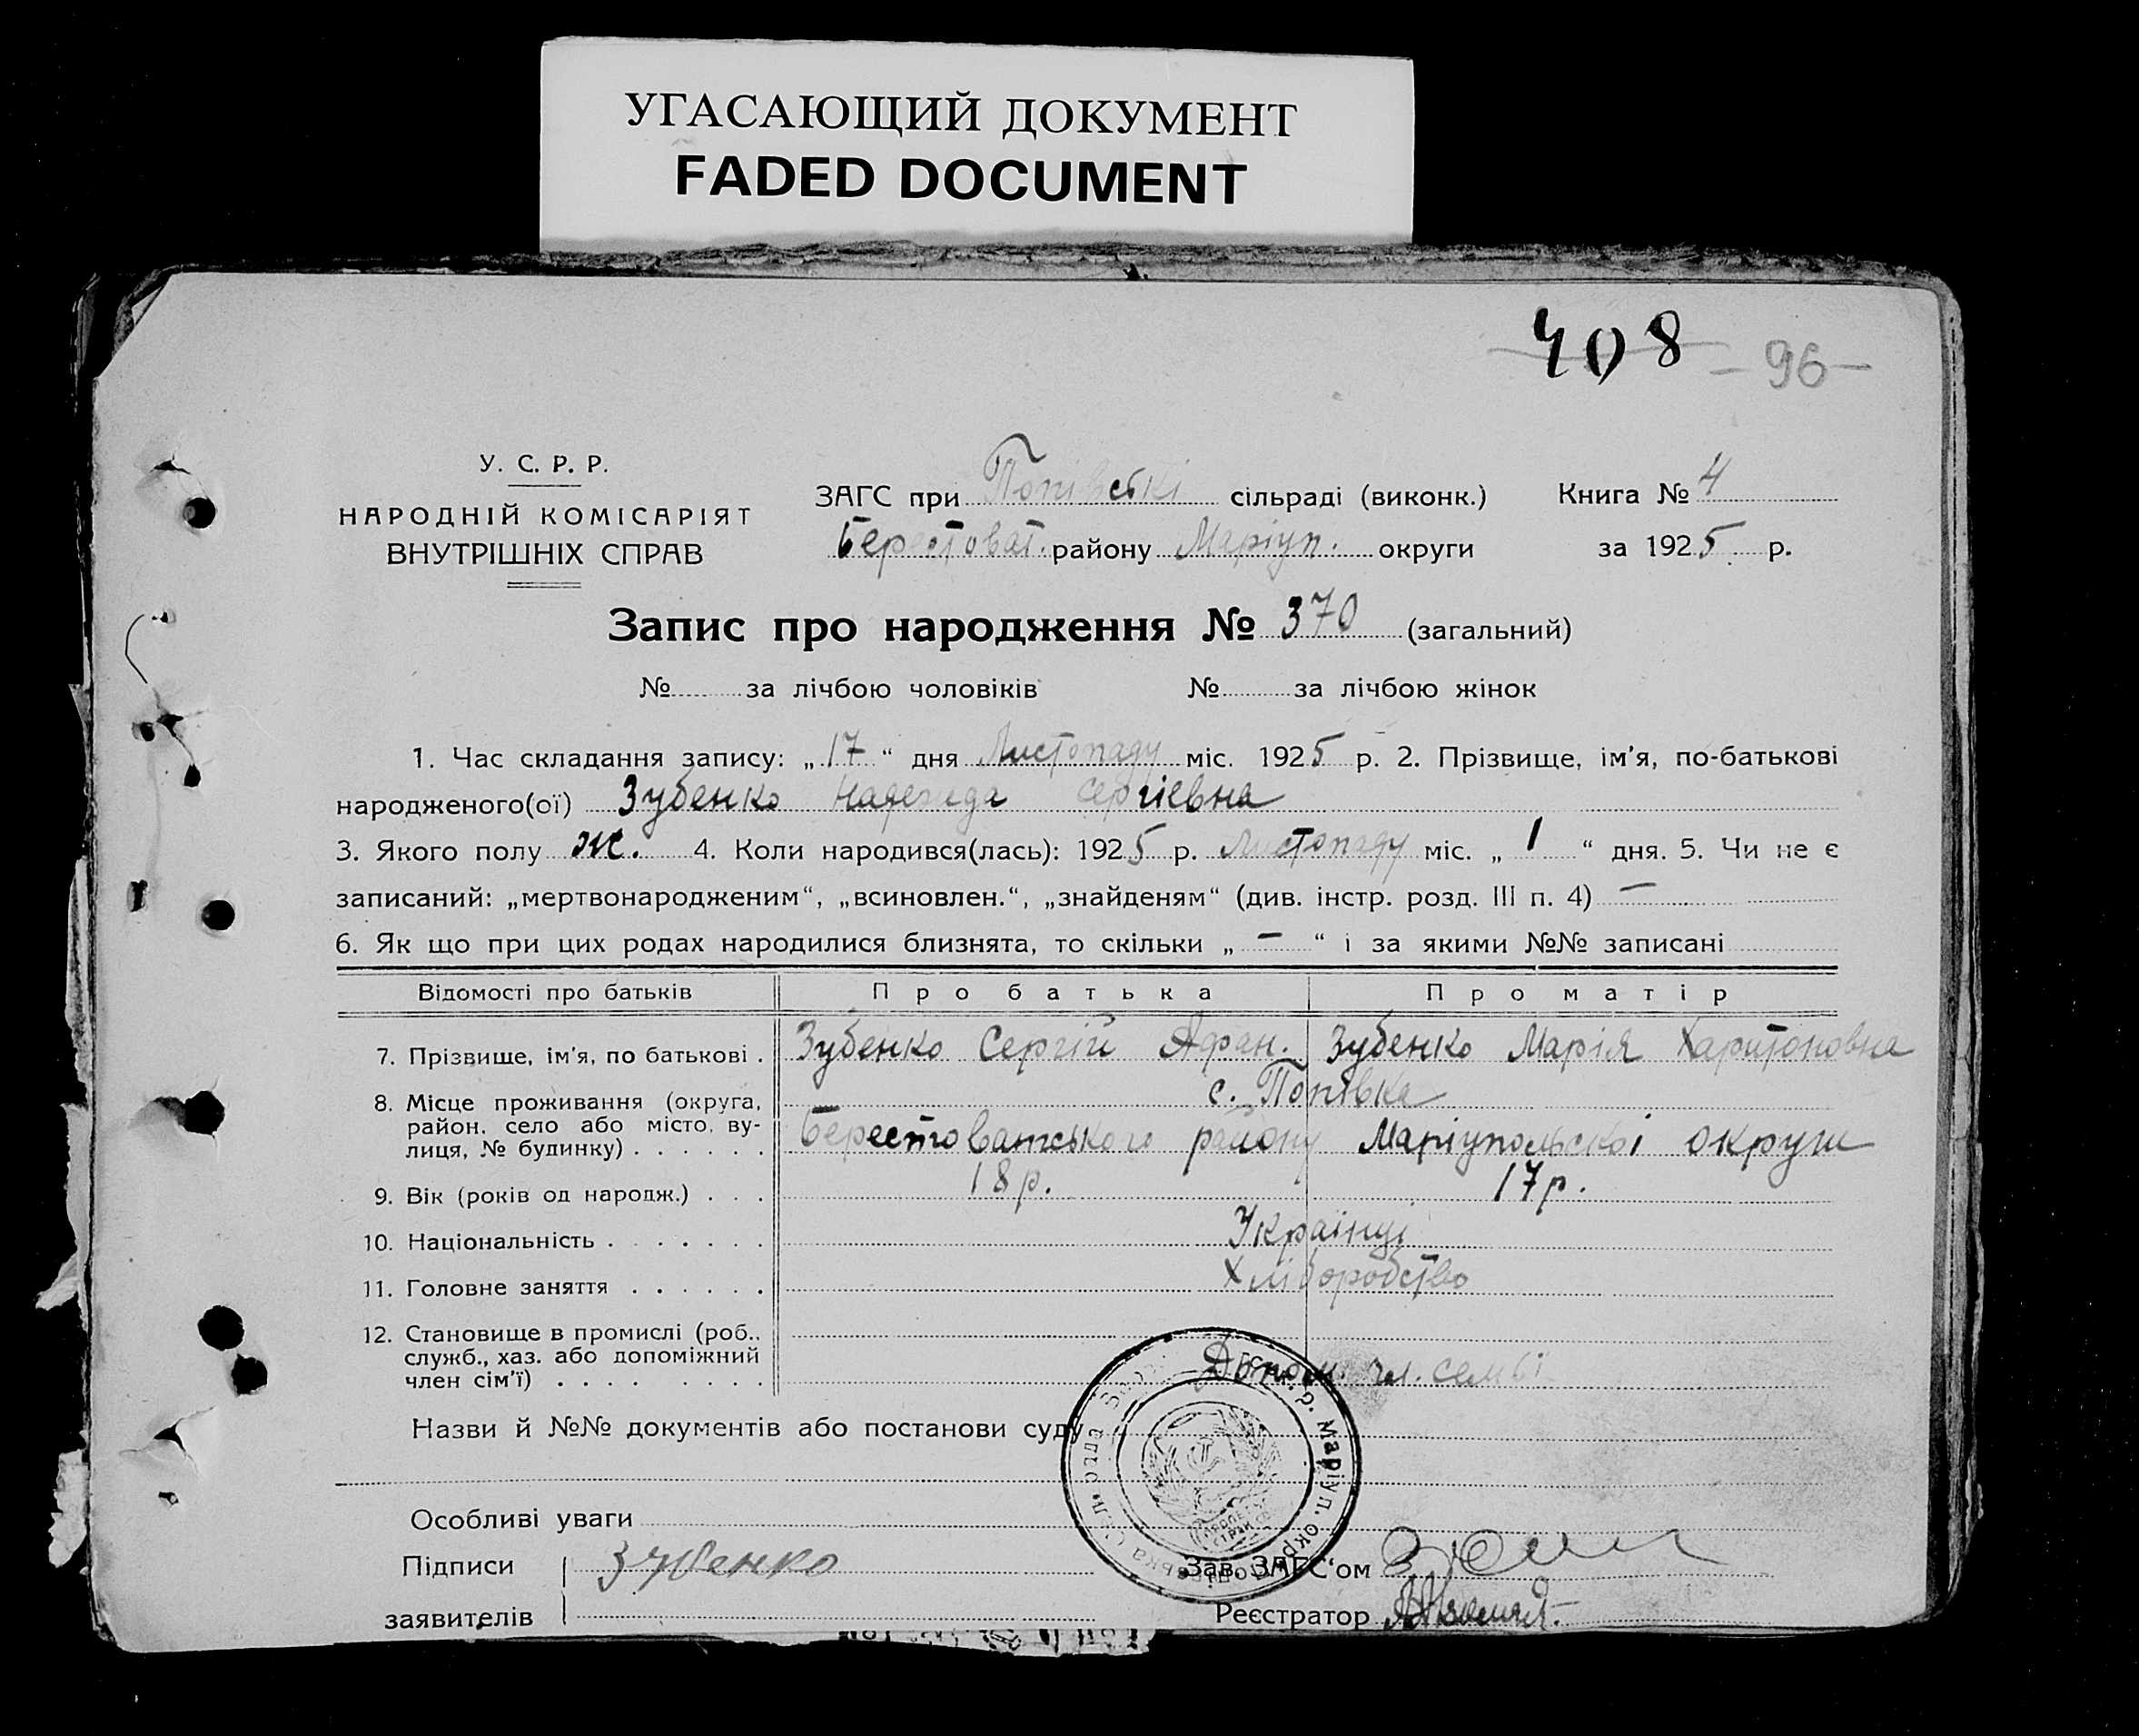 УГАСАЮЩИЙ ДОКУМЕНТ
FADED DOCUMENT
408 - 96 -
У. С. Р. Р.
НАРОДНІЙ КОМІСАРІЯТ
ВНУТРІШНІХ СПРАВ
ЗАГС при Попівські сільраді (виконк.) Книга № 4
Берестоват. району Маріуп. округи за 1925 р.
Запис про народження № 370 (загальний)
№ за лічбою чоловіків № за лічбою жінок
1. Час складання запису: „17“ дня Листопаду міс. 1925 р. 2. Прізвище, ім'я, по-батькові
народженого(ої) Зубенко Надежда Сергіевна
3. Якого полу ж. 4. Коли народився(лась): 1925 р. Листопаду міс. „1“ дня. 5. Чи не є
записаний: „мертвонародженим“, „всиновлен.“, „знайденям“ (див. інстр. розд. III п. 4) —
6. Як що при цих родах народилися близнята, то скільки „—“ і за якими №№ записані
Відомості про батьків Про батька Про матір
7. Прізвище, ім'я, по батькові . Зубенко Сергій Афан. Зубенко Марія Харитоновна
8. Місце проживання (округа, с. Попівка
район, село або місто, ву-
лиця, № будинку) . . . . . . Берестоватського району Маріупольскоі округи
9. Вік (років од народж.) . . . 18 р. 17 р.
10. Національність . . . . . . . Украінці
11. Головне заняття . . . . . . Хліборобство
12. Становище в промислі (роб.,
служб., хаз. або допоміжний
член сім'ї) . . . . . . . . . Допом. чл. семьі
Назви й №№ документів або постанови суду
Особливі уваги
Підписи Зубенко Зав. ЗАГС'ом
заявителів Реєстратор
р. Маріуп. окр.